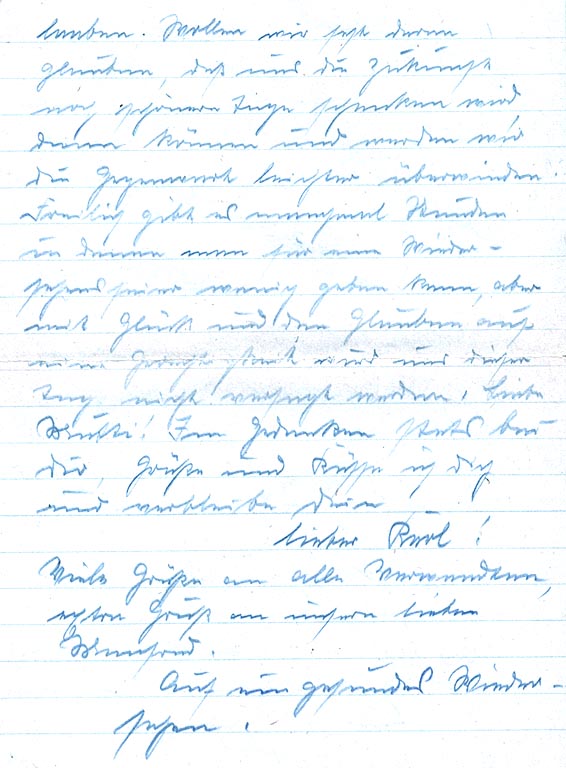 lauben. Wollen wir fest daran
glauben, daß uns die Zukunft
noch schönere Tage schenken wird,
dann können und werden wir
die Gegenwart leichter überwinden.
Freilich gibt es manchmal Stunden
in denen man für eine Wieder-
sehensfeier wenig geben kann, aber
mit Glück und den Glauben auf
eine Gerechtigkeit wird uns dieser
Tag nicht versagt werden. Liebe
! Im Gedenken stets bei
dir, Grüße und Küsse ich dich
und verbleibe dein
lieber Karl!
Viele Grüße an alle Verwandten,
extra Gruß an unsern lieben
Manfred.
Auf ein gesundes Wieder-
sehen.